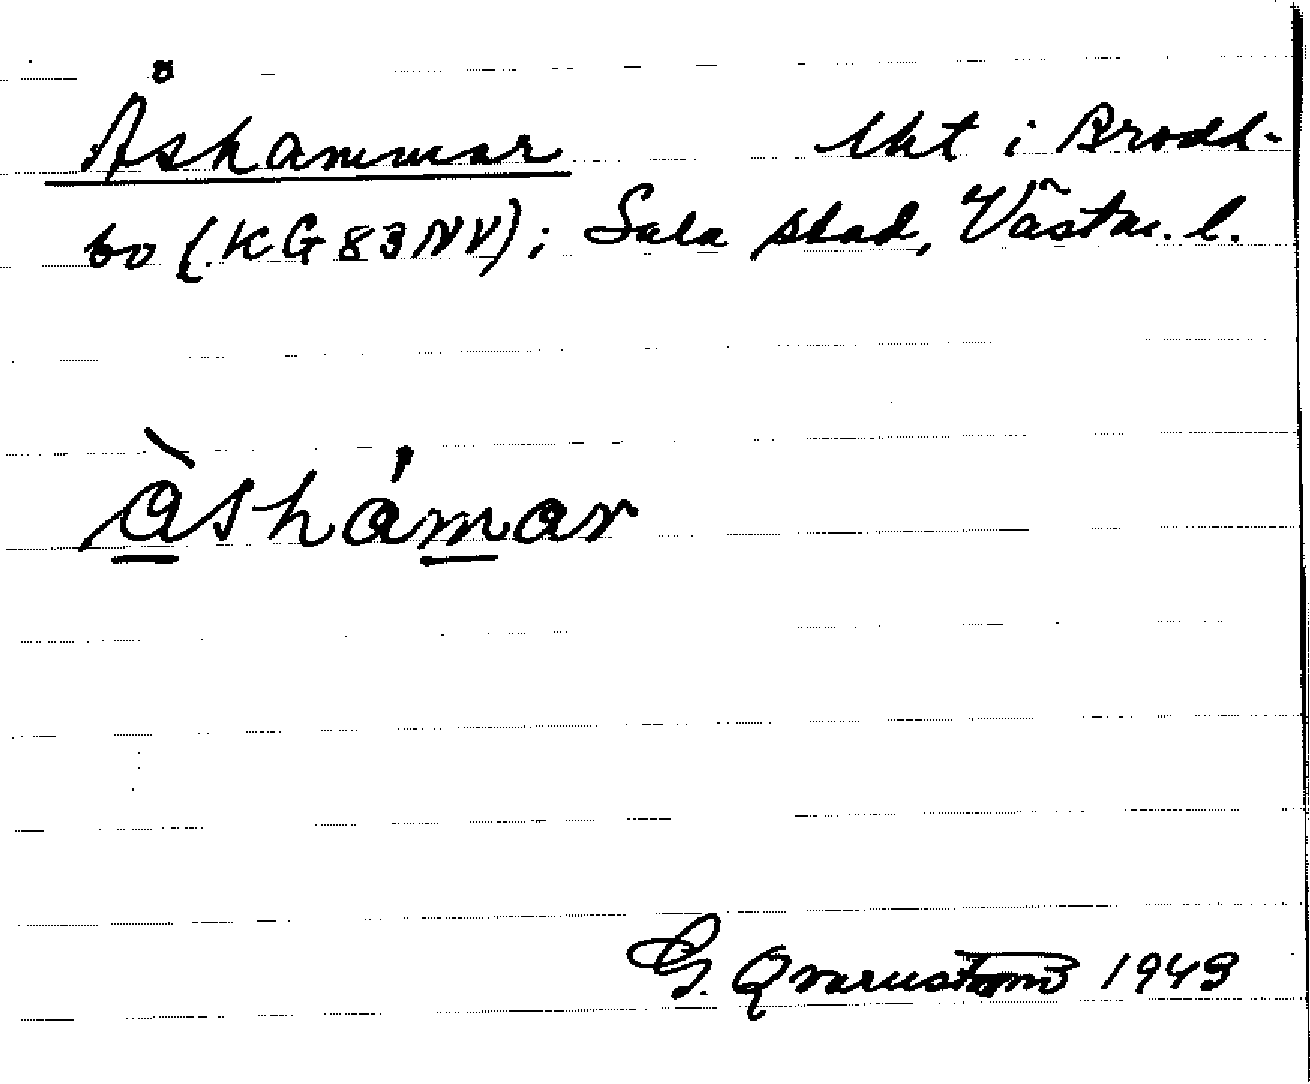 Åshammar lht i Brodd-
bo (KG83NV); Sala stad, Västm. l.
àshámar
G. Qvarnström 1943